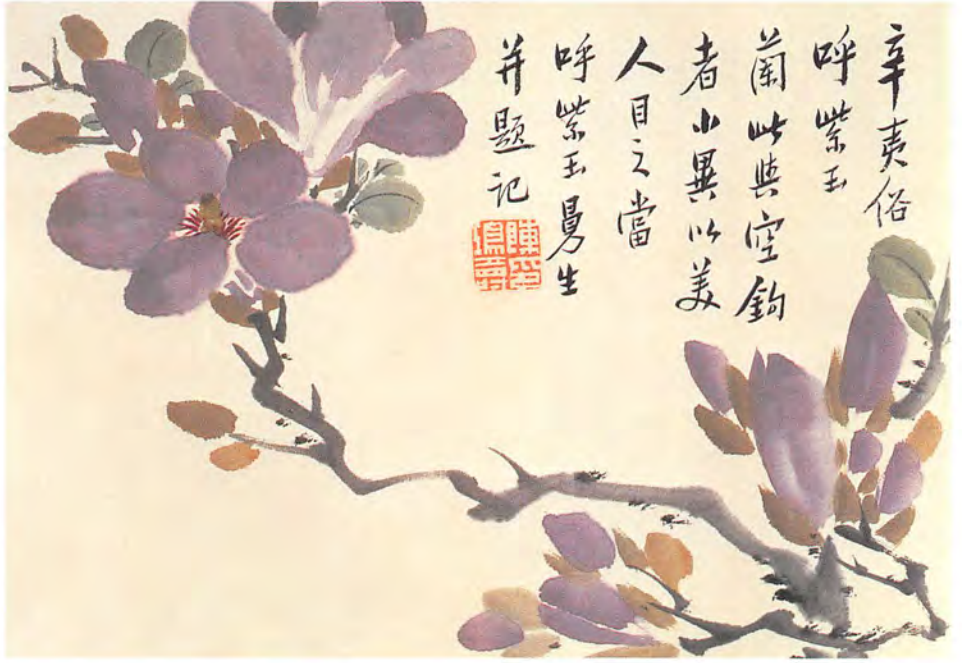 辛夷俗
呼紫玉
蘭此與空鉤
者小異以美
人目之當
呼紫玉曼生
并題记
陳鴻壽印